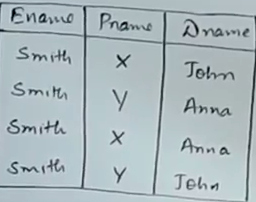 Ename Pname Dname
Smith X John
Smith Y Anna
Smith X Anna
Smith Y John